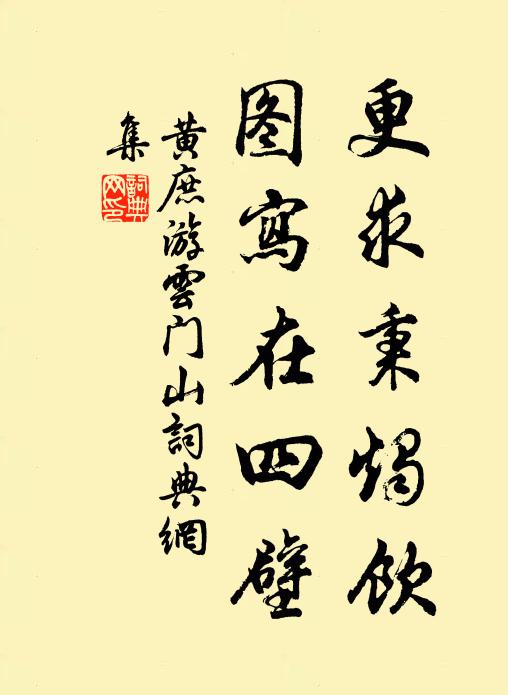 更求秉烛饮
图寫在四壁
黄庶游雲门山詞典網
集
詞典網印